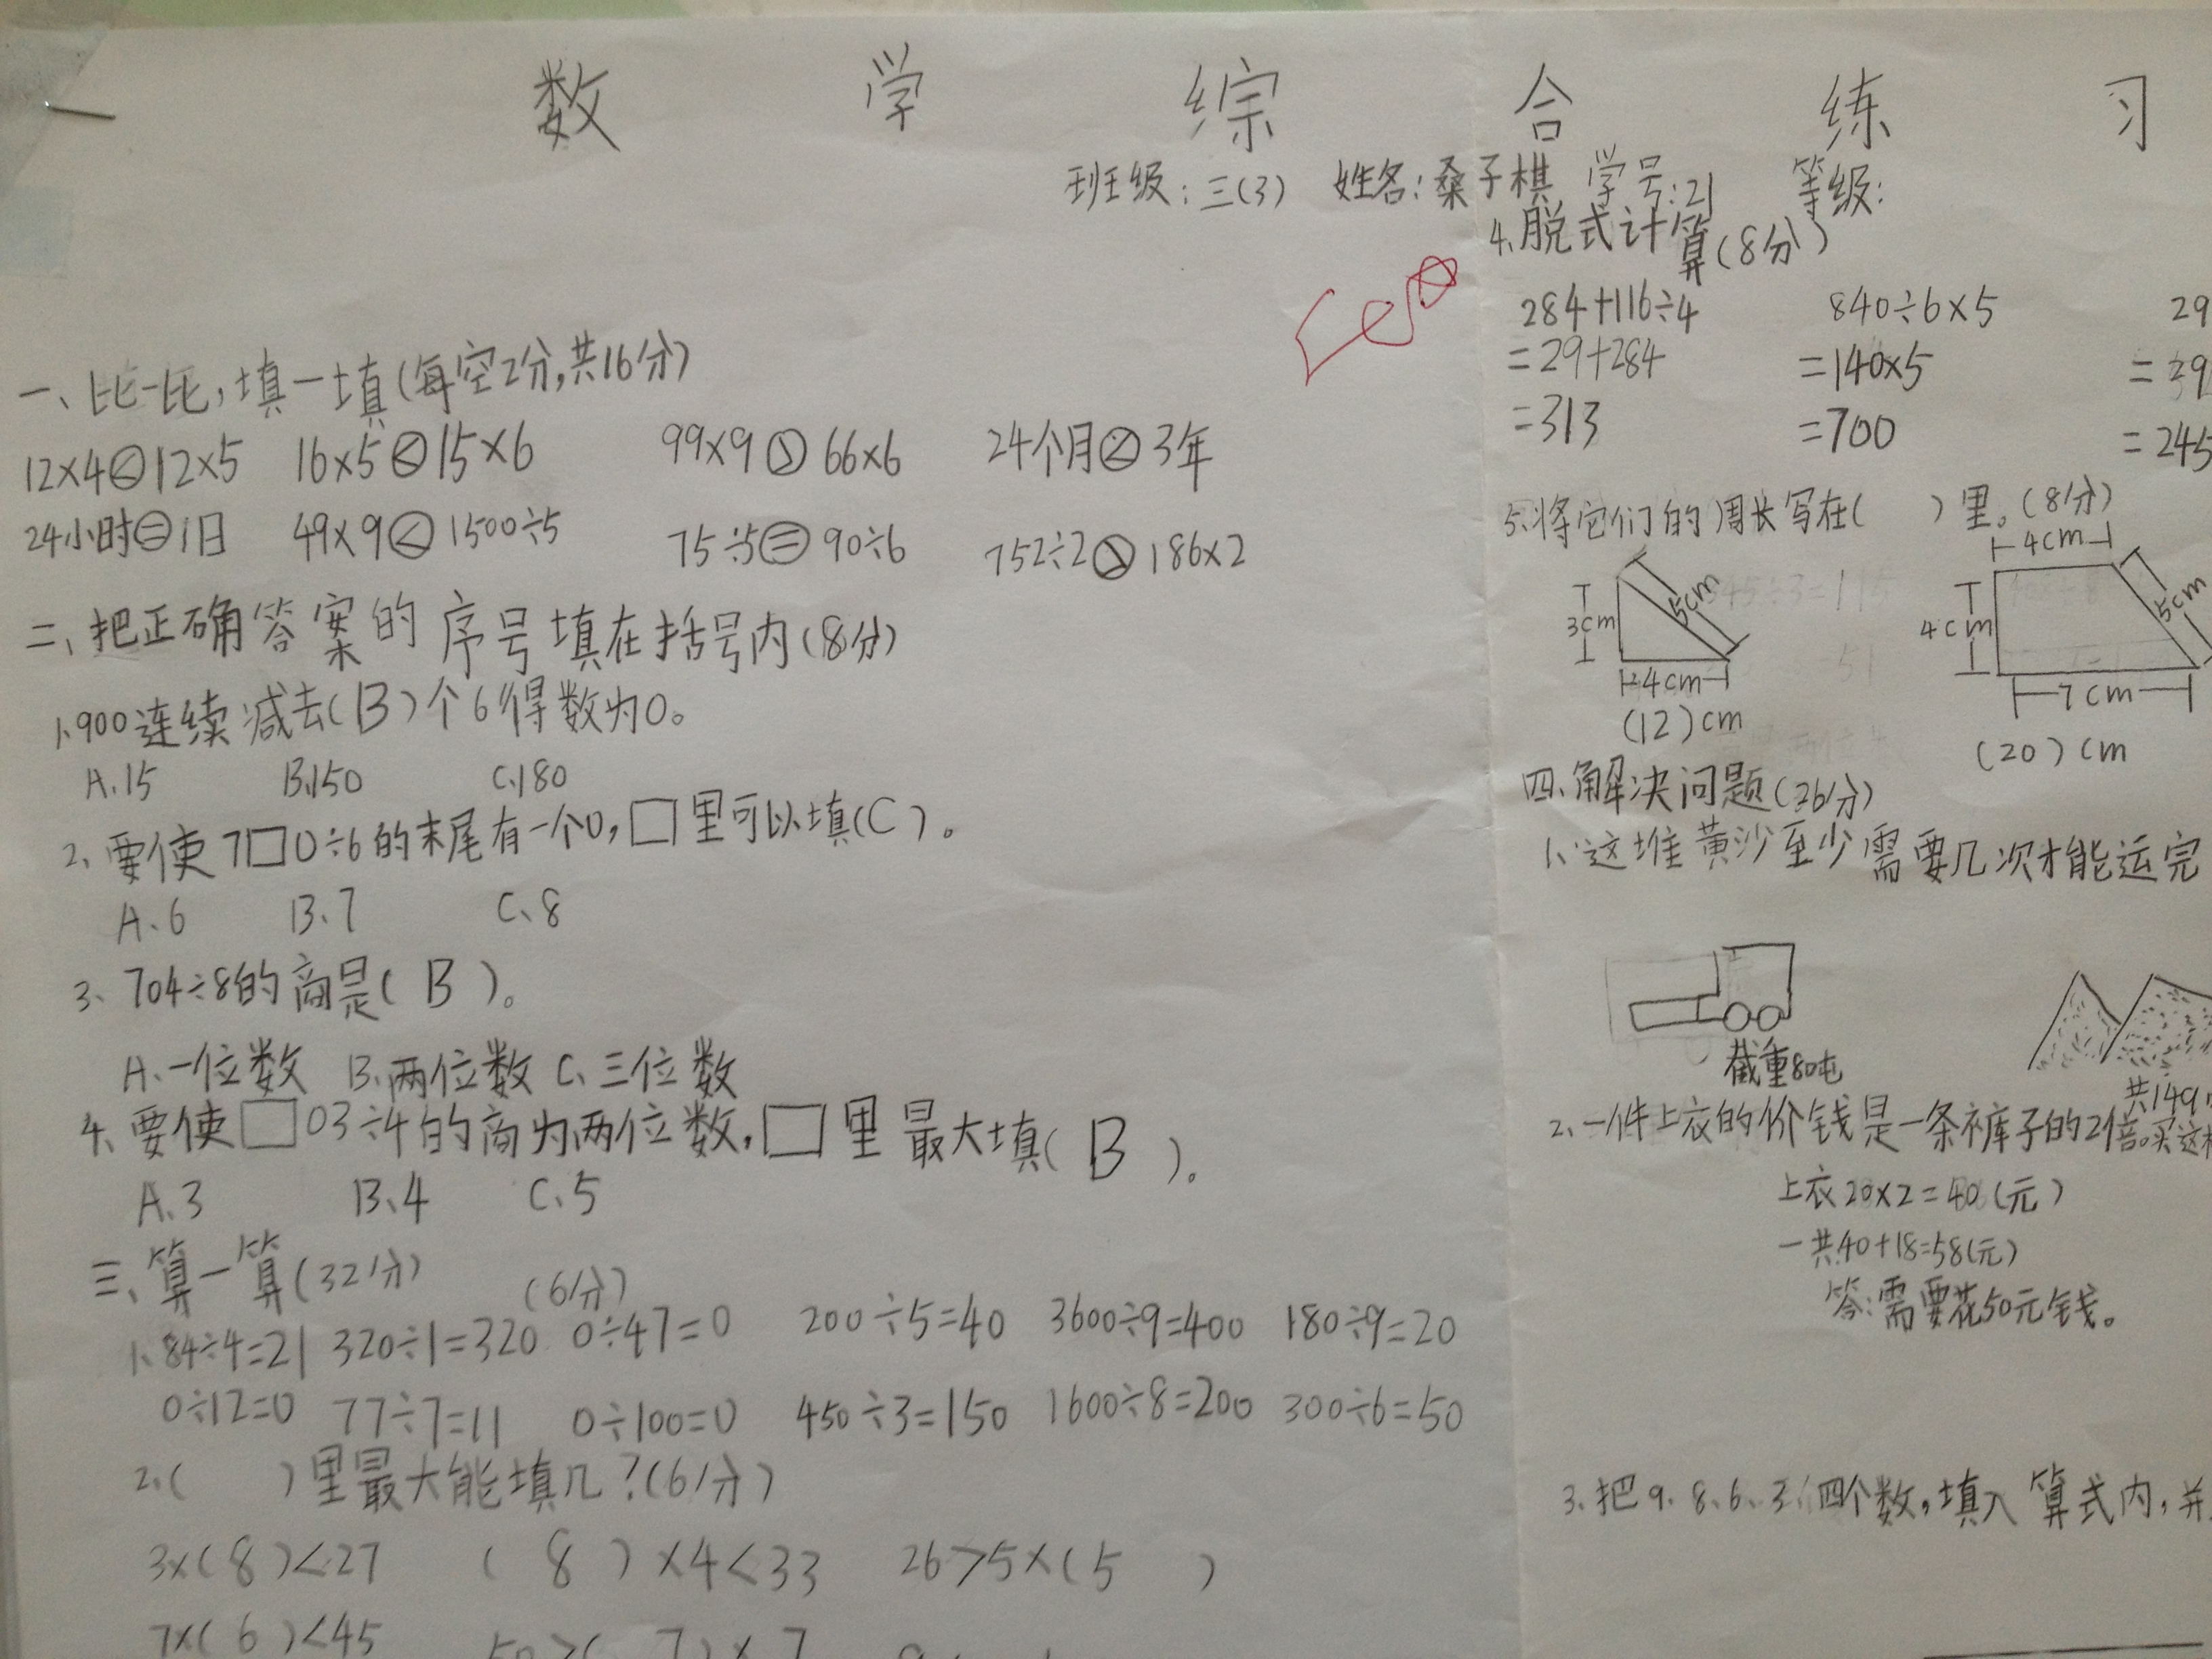 数学综合练习
班级:三(3) 姓名:桑子棋 学号:21 等级:
一、比一比,填一填(每空2分,共16分)
12×4<12×5 16×5<15×6 99×9>66×6 24个月<3年
24小时=1日 49×9< 1500÷5 75÷5=90÷6 752÷2>186×2
二、把正确答案的序号填在括号内(8分)
1、900连续减去(B)个6得数为0。
A.15 B.150 C.180
2、要使7□0÷6的末尾有一个0,□里可以填(C)。
A、6 B、7 C、8
3、704÷8的商是( B )。
A、一位数 B、两位数 C、三位数
4、要使□03÷4的商为两位数,□里最大填( B )。
A、3 B、4 C、5
三、算一算(32分) (6分)
1、84÷4=21 320÷1=320 0÷47=0 200÷5=40 3600÷9=400 180÷9=20
0÷12=0 77÷7=11 0÷100=0 450÷3=150 1600÷8=200 300÷6=50
2、( )里最大能填几?(6分)
3×(8)<27 ( 8 )×4<33 26>5×(5 )
7×( 6 )<45 50>( 7)×7
4、脱式计算(8分)
284+116÷4 840÷6×5 29
=29+284 =140×5 =39
=313 =700 =245
5、将它们的周长写在( )里。(8分)
3cm 5cm 4cm
(12)cm
4cm 4cm 5cm 7cm
(20)cm
四、解决问题(26分)
1、这堆黄沙至少需要几次才能运完
截重80吨
共149
2、一件上衣的价钱是一条裤子的2倍。买这
上衣20×2=40(元)
一共40+18=58(元)
答:需要花50元钱。
3、把9、8、6、3、四个数,填入算式内,并